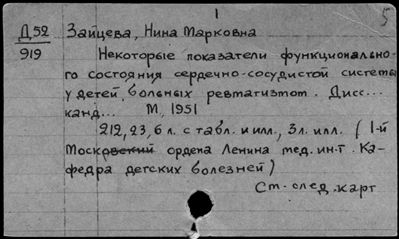 1
5
Д 52 Зайцева, Нина Марковна
919
Некоторые показатели функционально-
го состояния сердечно-сосудистой системы
у детей, больных ревматизмом. Дисс...
канд... М, 1951
212, 23, 6 л. с табл. и илл., 3 л. илл. (1-й
Московский ордена Ленина мед. ин-т. Ка-
федра детских болезней)
См. след. карт